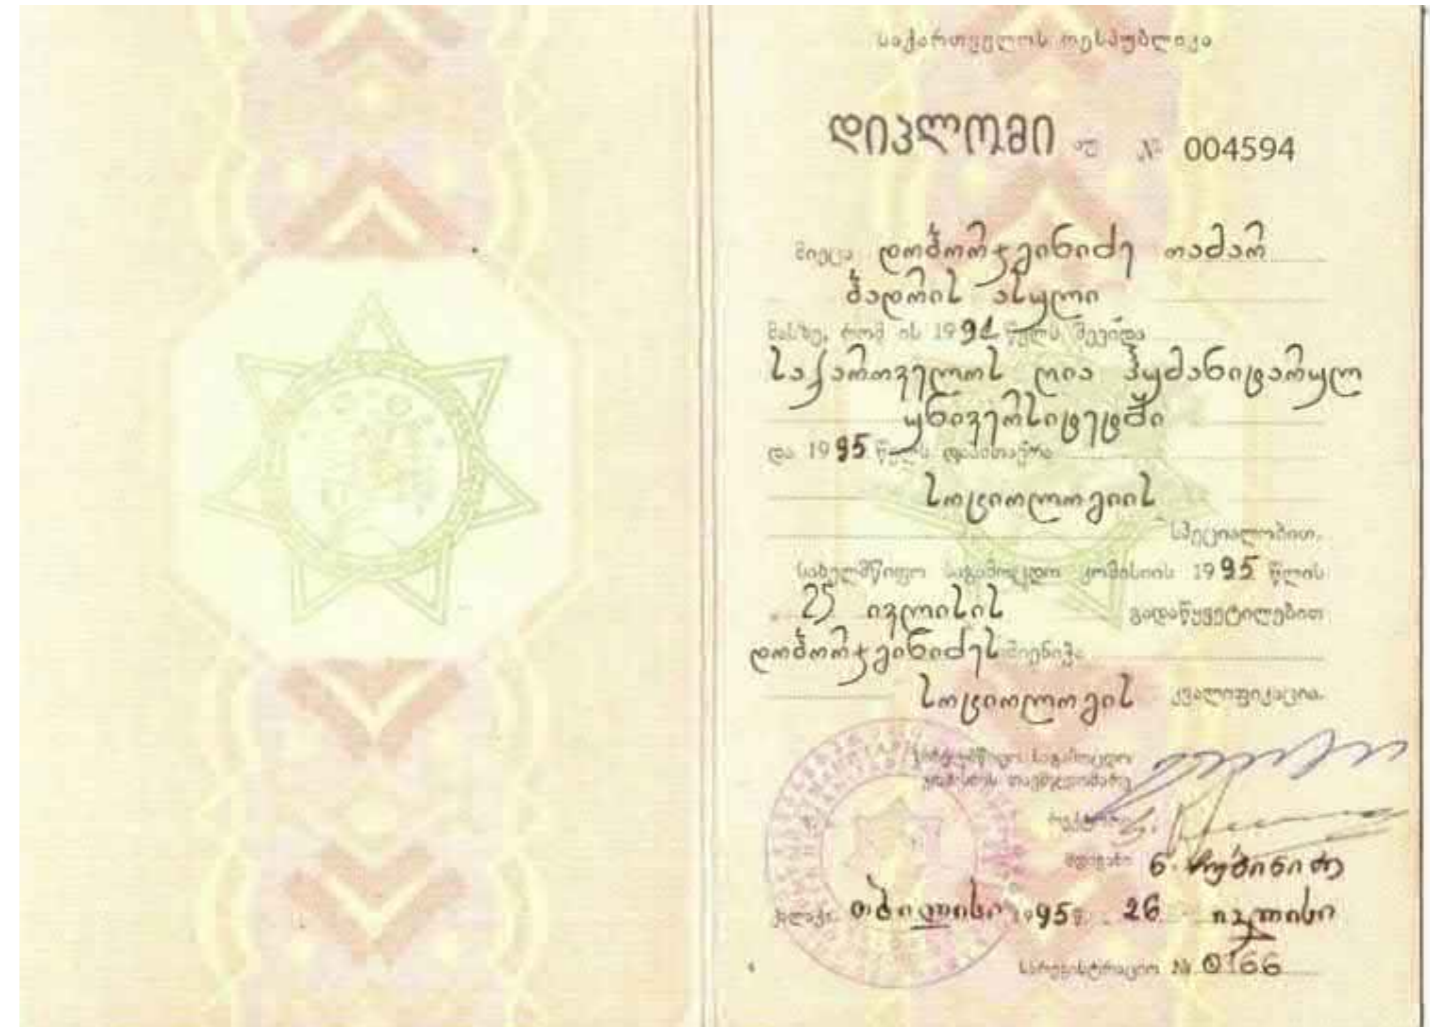 საქართველოს რესპუბლიკა
დიპლომი უ № 004594
მიეცა დობორჯგინიძე თამარ
ბადრის ასული
მასზე, რომ ის 1991 წელს შევიდა
საქართველოს ღია ჰუმანიტარულ
უნივერსიტეტში
და 1995 წელს დაამთავრა
სოციოლოგიის
სპეციალობით.
სახელმწიფო საგამოცდო კომისიის 1995 წლის
25 ივლისის გადაწყვეტილებით
დობორჯგინიძეს მიენიჭა
სოციოლოგის კვალიფიკაცია.
სახელმწიფო საგამოცდო
კომისიის თავმჯდომარე
რექტორი
მდივანი ნ.
ქალაქი თბილისი 1995 წ. 26 ივლისი
სარეგისტრაციო № 0166